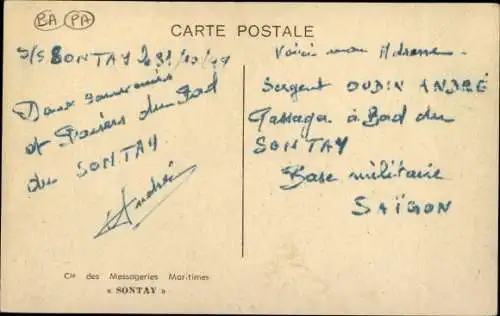 BA PA
CARTE POSTALE
S/S SONTAY
Doux souvenirs
et Baisers du Bod
du SONTAY
André
Voici mon Adresse.
Sergent OUDIN ANDRÉ
Passager à Bord du
SONTAY
Base militaire
SAÏGON
Cie des Messageries Maritimes
« SONTAY »